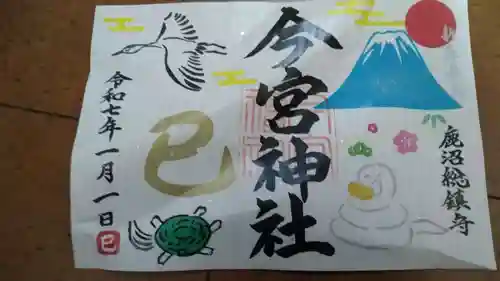 鹿沼総鎮守
今宮神社
巳
令和七年一月一日
巳